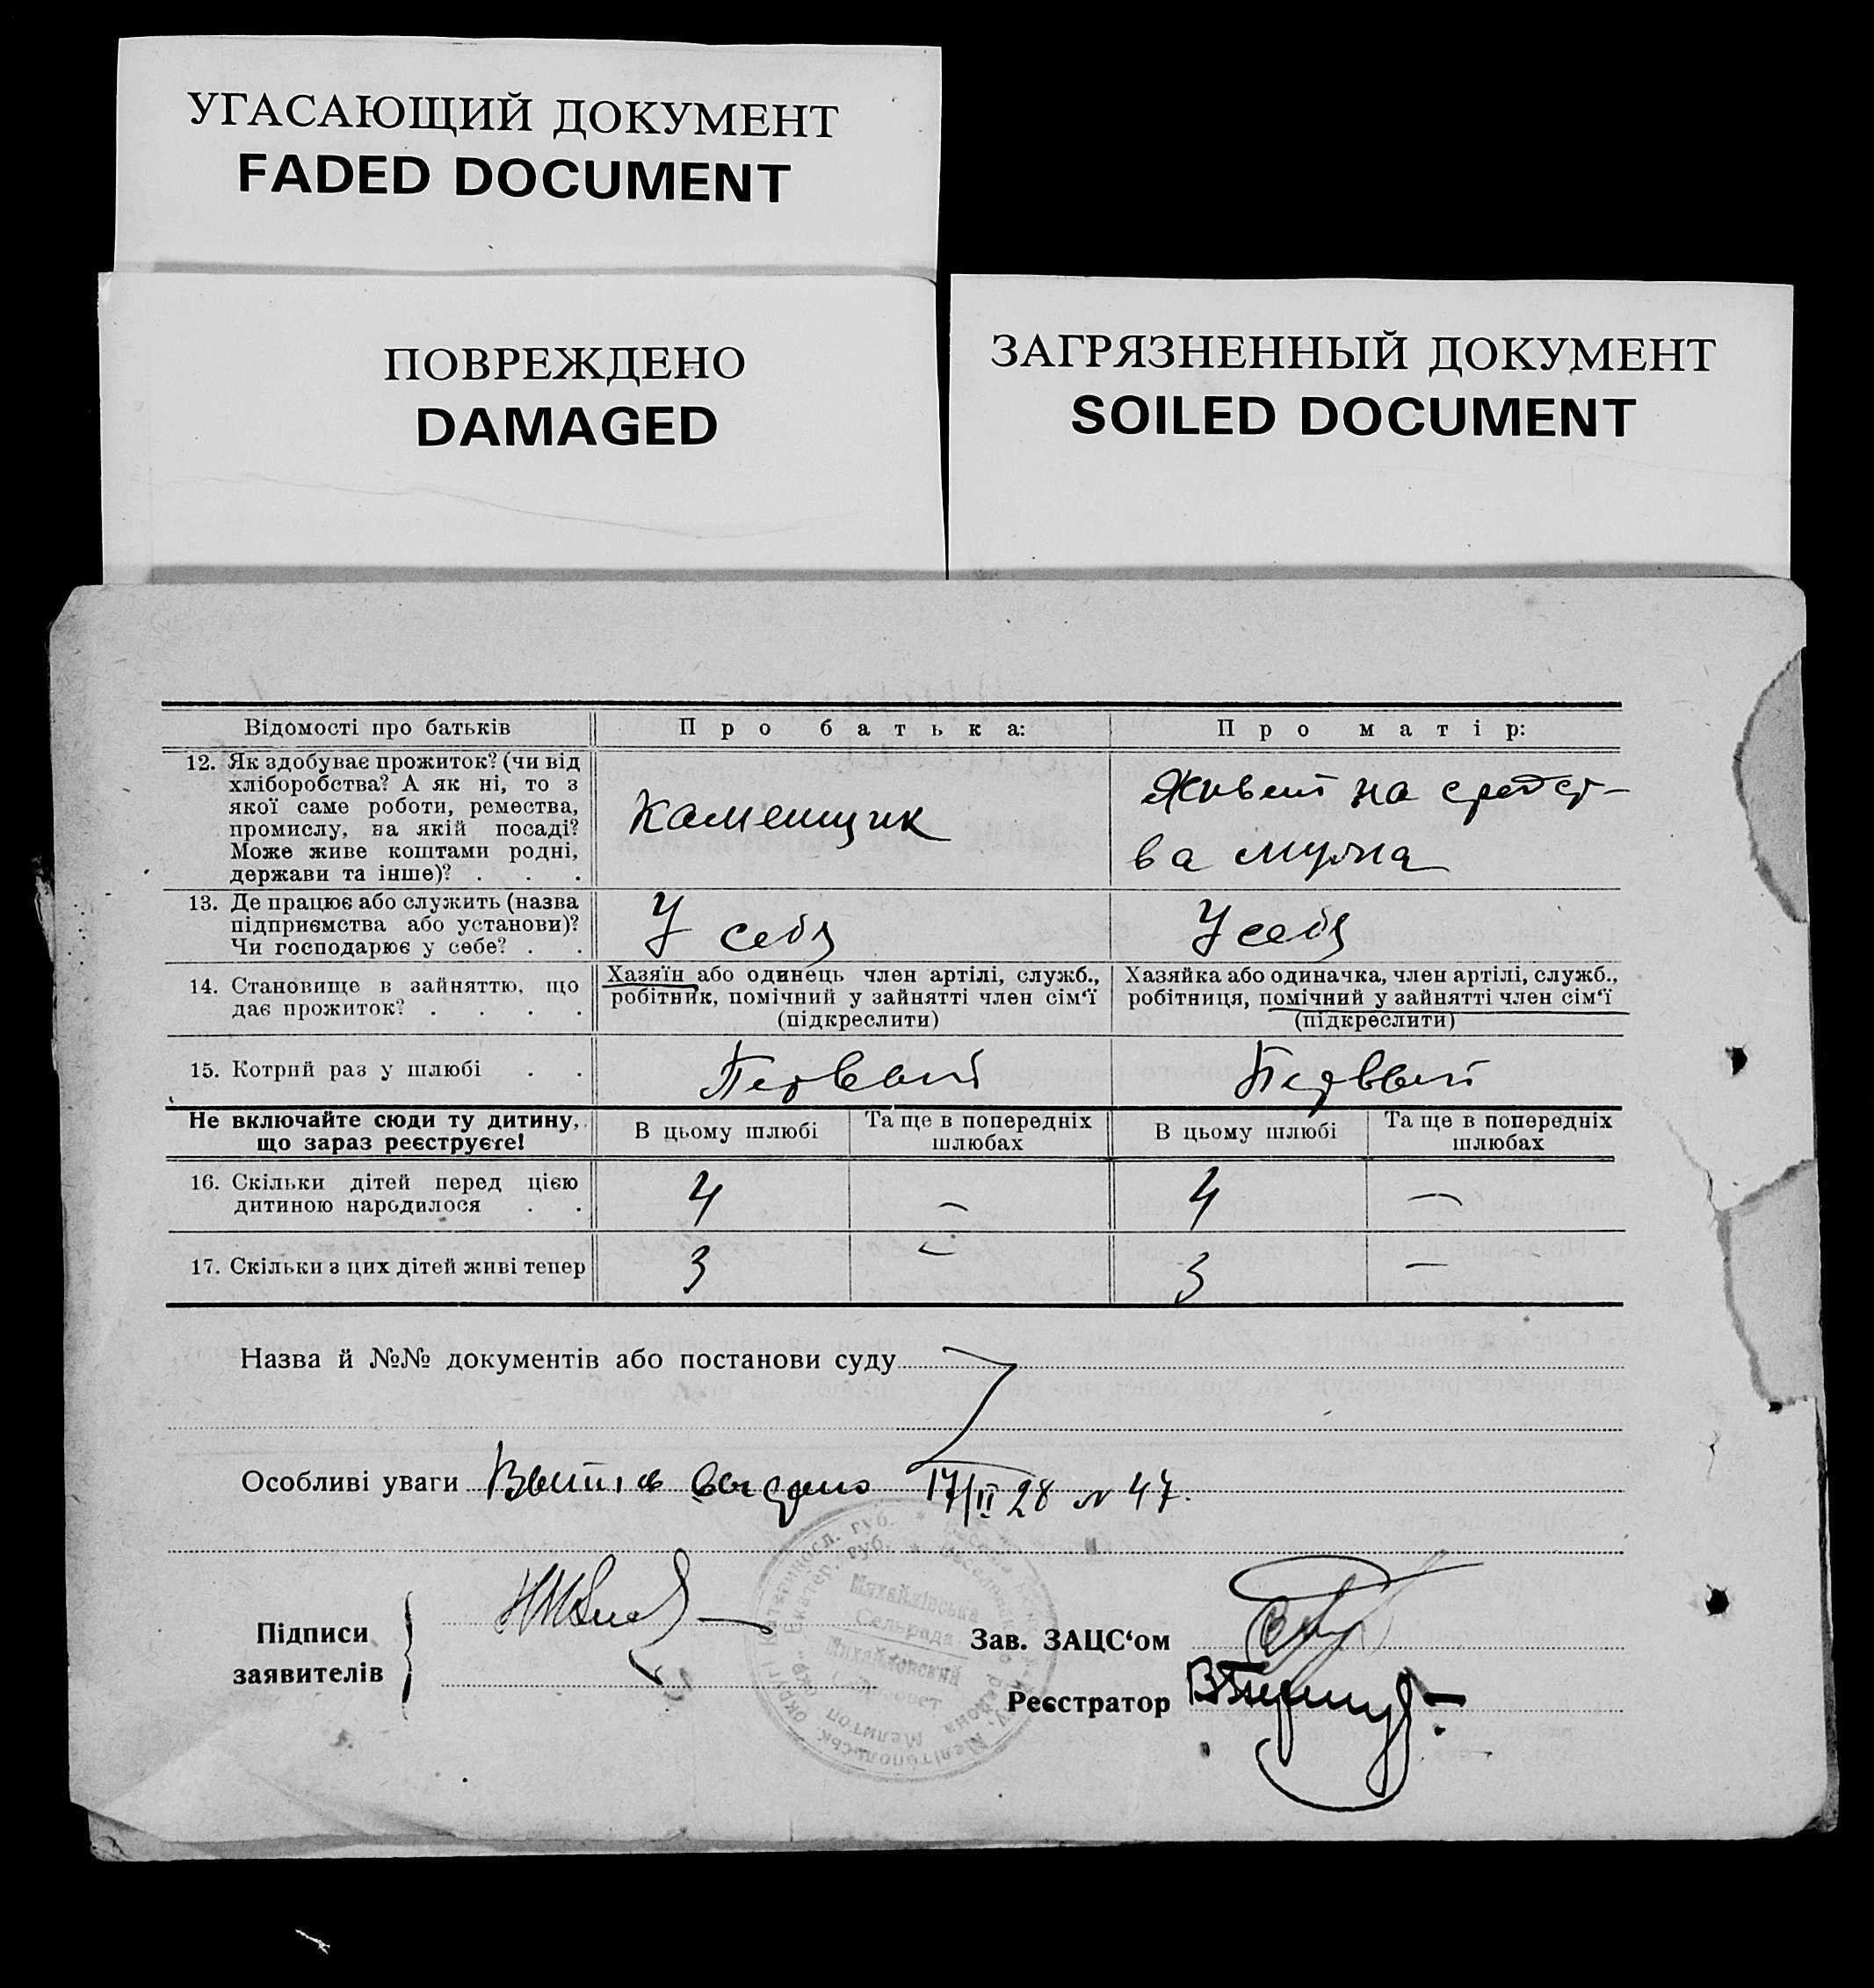 УГАСАЮЩИЙ ДОКУМЕНТ
FADED DOCUMENT
ПОВРЕЖДЕНО
DAMAGED
ЗАГРЯЗНЕННЫЙ ДОКУМЕНТ
SOILED DOCUMENT
Відомості про батьків
Про батька:
Про матір:
12. Як здобуває прожиток? (чи від
хліборобства? А як ні, то з
якої саме роботи, ремества,
промислу, на якій посаді?
Може живе коштами родні,
держави та інше)? . . .
Каменщик
Живет на средст-
ва мужа
13. Де працює або служить (назва
підприємства або установи)?
Чи господарює у себе? . .
У себя
У себя
14. Становище в зайняттю, що
дає прожиток? . . . .
Хазяїн або одинець член артілі, служб.,
робітник, помічний у зайнятті член сім‘ї
(підкреслити)
Хазяйка або одиначка, член артілі, служб.,
робітниця, помічний у зайнятті член сім‘ї
(підкреслити)
15. Котрий раз у шлюбі . .
Первый
Первый
Не включайте сюди ту дитину,
що зараз реєструєте!
В цьому шлюбі
Та ще в попередніх
шлюбах
В цьому шлюбі
Та ще в попередніх
шлюбах
16. Скільки дітей перед цією
дитиною народилося . .
4
—
4
—
17. Скільки з цих дітей живі тепер
3
—
3
—
Назва й №№ документів або постанови суду
Особливі уваги выдано 17/II 28 № 47.
Підписи
заявителів
Зав. ЗАЦС‘ом
Реєстратор
Михайлівська
Сельрада
Михайловский
Сельсовет